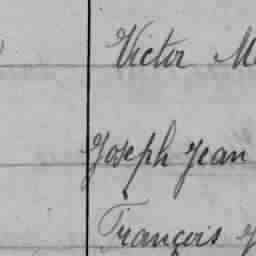 Victor M
Joseph Jean
François J